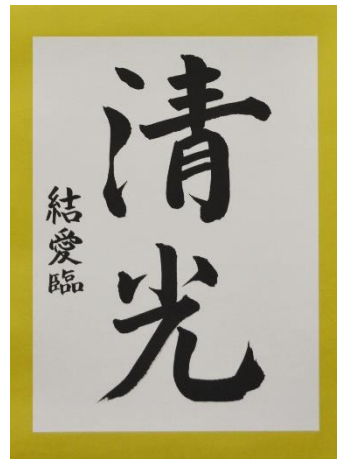 清光
結愛臨